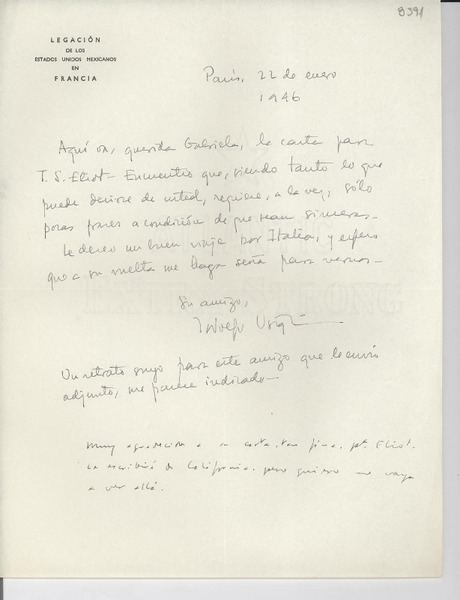 8391
LEGACIÓN
DE LOS
ESTADOS UNIDOS MEXICANOS
EN
FRANCIA
París, 22 de enero
1946
Aquí va, querida Gabriela, la carta para
T. S. Eliot. Encuentro que, siendo tanto lo que
puede decirse de usted, requiere, a la vez, sólo
pocas frases a condición de que sean sinceras.
Le deseo un buen viaje por Italia, y espero
que a su vuelta me haga seña para vernos.
Su amigo,
Rodolfo Usigli
Un retrato suyo para este amigo que le envío
adjunto, me parece indicado.
Muy agradecida a su carta, tan fina, pt. Eliot.
La escribiré de California. pero quiero me vaya
a ver allá.